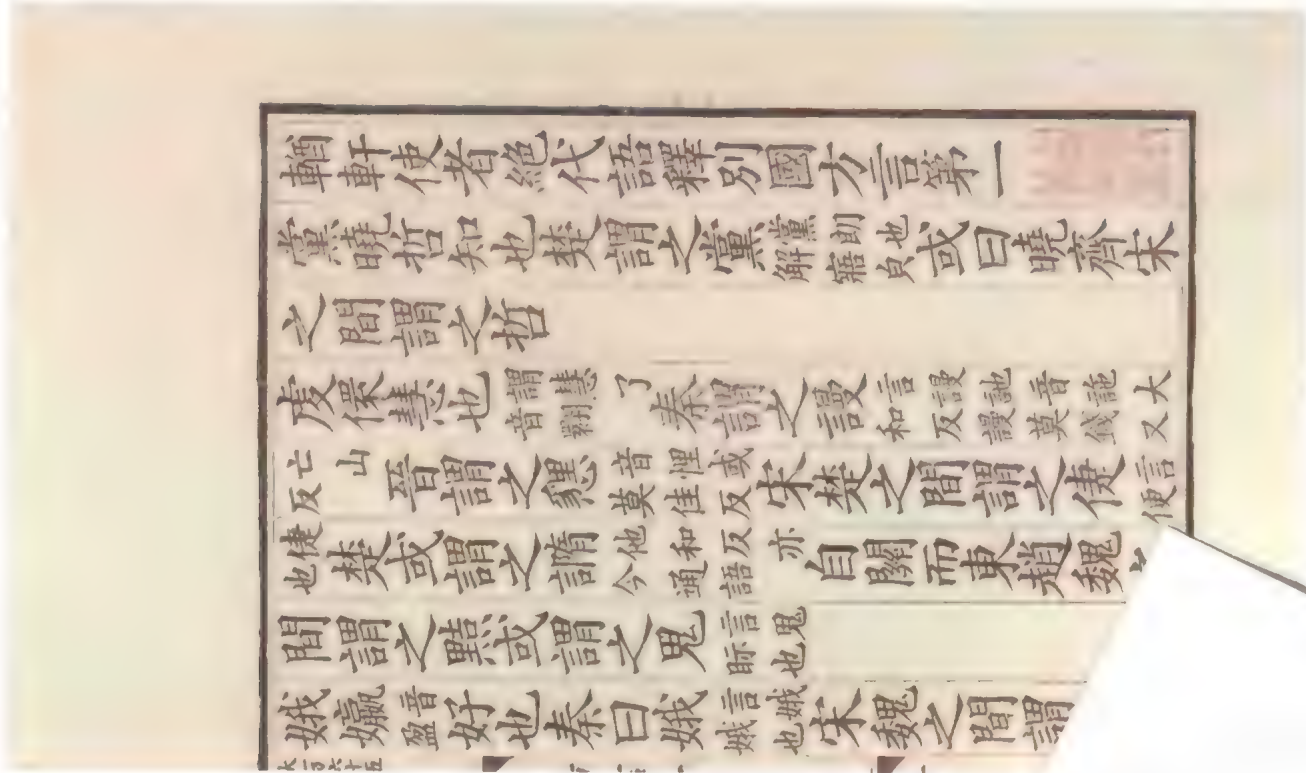 輶軒使者絕代語釋別國方言第一
黨曉哲知也楚謂之黨黨朗也解寤皃或曰曉齊宋
之間謂之哲
虔儇慧也謂慧了音翾秦謂之謾言謾訑音訑大和反謾莫錢又
亡山反晉謂之𢤬音悝或莫佳反宋楚之間謂之倢言便
倢也楚或謂之䜏他和反亦今通語自關而東趙魏
間謂之黠或謂之鬼言鬼眎也
娥㜲音盈好也秦曰娥言娥娥也宋魏之間謂